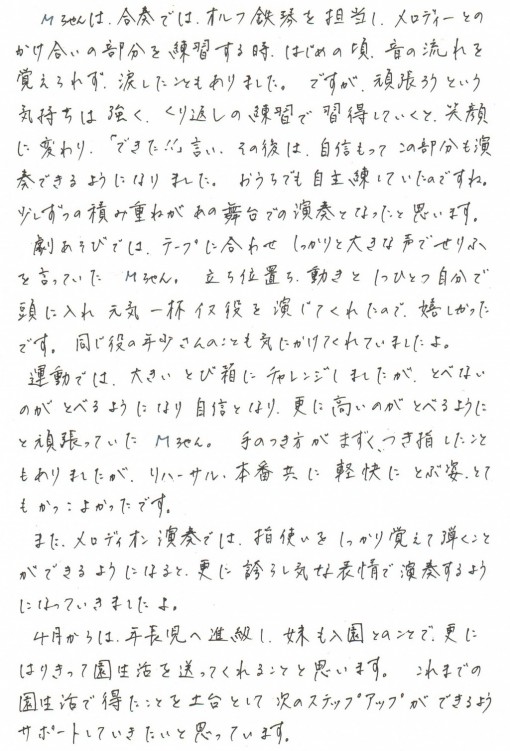 Mちゃんは、合奏では、オルフ鉄琴を担当し、メロディーとの
かけ合いの部分を練習する時、はじめの頃、音の流れを
覚えられず、涙したこともありました。ですが、頑張ろうという
気持ちは強く、くり返しの練習で習得していくと、笑顔
に変わり、「できた!!」言い、その後は、自信もってこの部分も演
奏できるようになりました。おうちでも自主練していたのですね。
少しずつの積み重ねがあの舞台での演奏となったと思います。
劇あそびでは、テープに合わせしっかりと大きな声でせりふ
を言っていたMちゃん。立ち位置も、動きと1つひとつ自分で
頭に入れ元気一杯イヌ役を演じてくれたので、嬉しかった
です。同じ役の年少さんのことも気にかけてくれていましたよ。
運動では、大きいとび箱にチャレンジしましたが、とべない
のがとべるようになり自信となり、更に高いのがとべるように
と頑張っていたMちゃん。手のつき方がまずく、つき指したこと
もありましたが、リハーサル、本番共に軽快にとぶ姿、とて
もかっこよかったです。
また、メロディオン演奏では、指使いをしっかり覚えて弾くこと
ができるようになると、更に誇らし気な表情で演奏するよう
になっていきましたよ。
4月からは、年長児へ進級し、妹も入園とのことで、更に
はりきって園生活を送ってくれることと思います。これまでの
園生活で得たことを土台として次のステップアップができるよう
サポートしていきたいと思っています。